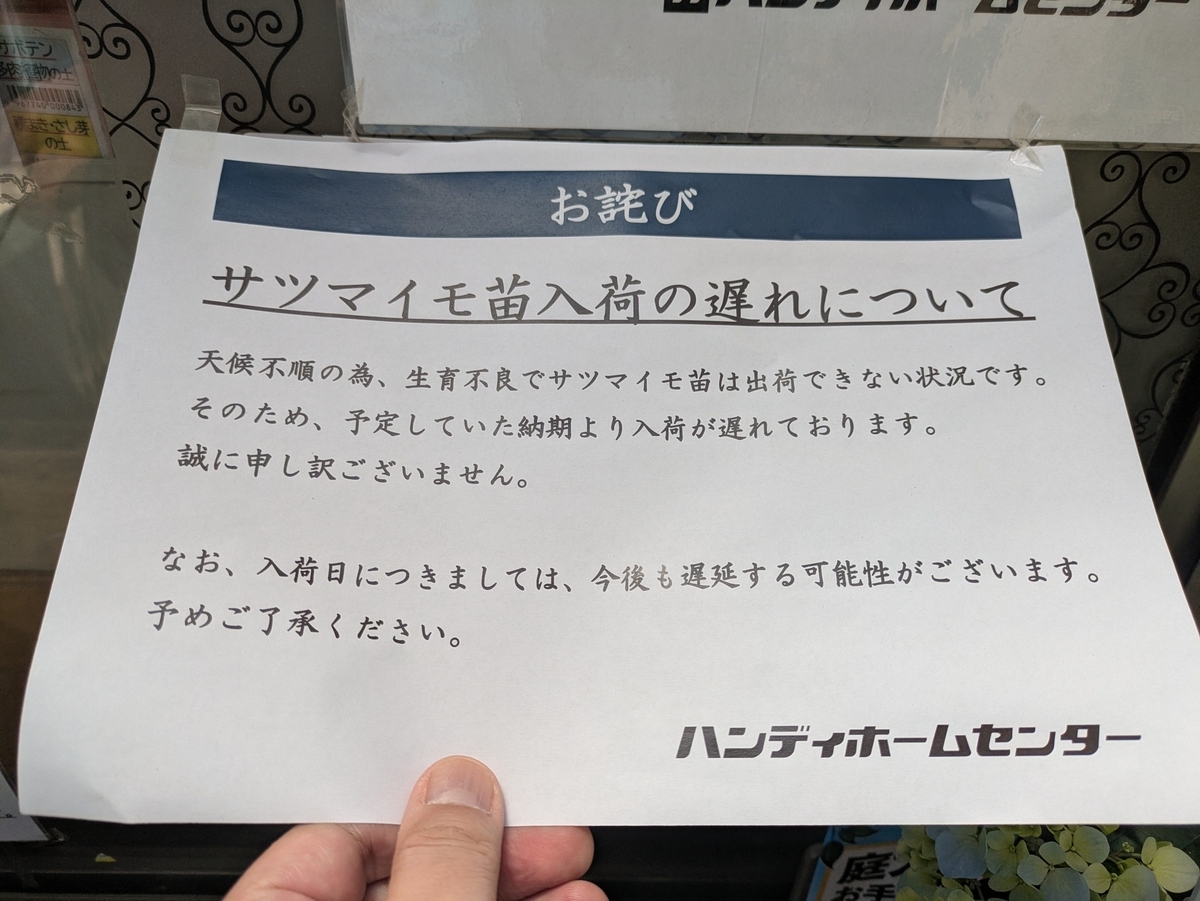 ハンディホームセンター
サボテン
多肉植物の土
さし芽
の土
お詫び
サツマイモ苗入荷の遅れについて
天候不順の為、生育不良でサツマイモ苗は出荷できない状況です。
そのため、予定していた納期より入荷が遅れております。
誠に申し訳ございません。
なお、入荷日につきましては、今後も遅延する可能性がございます。
予めご了承ください。
ハンディホームセンター
庭
お手